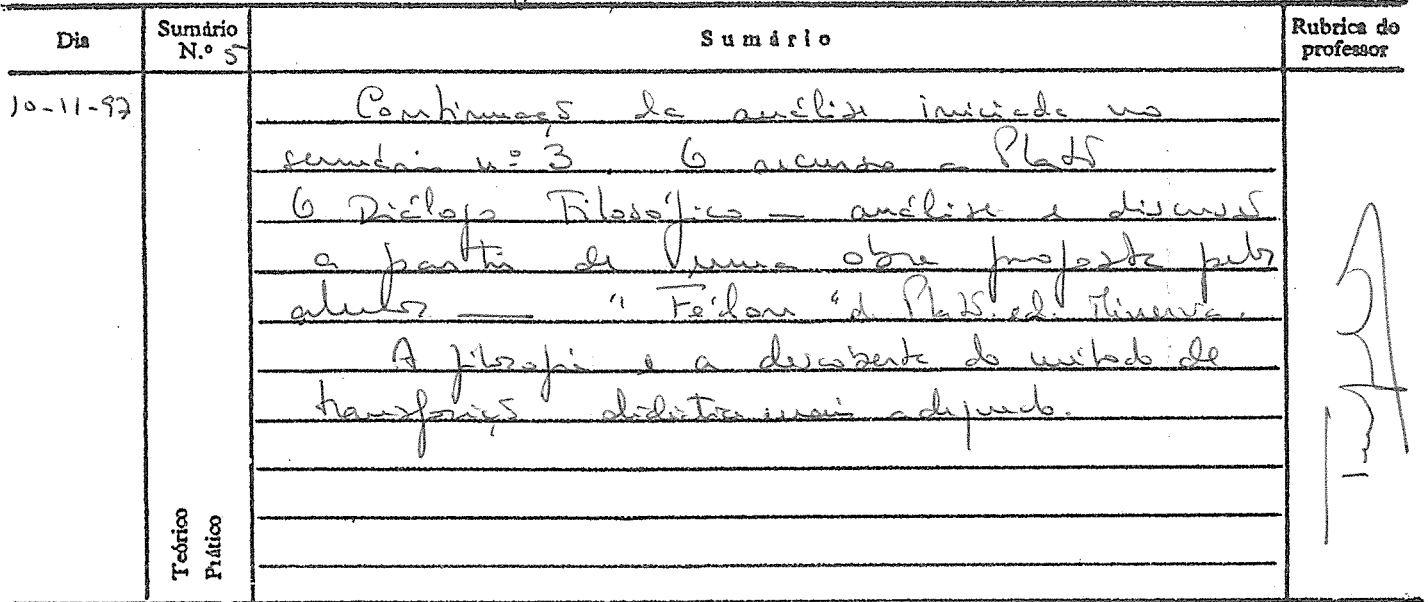 Dia Sumário N.º 5 Sumário Rubrica do professor
10-11-97 Continuação da análise iniciada no
sumário nº 3 O recurso a Platão
O Diálogo Filosófico — análise e discussão
a partir de uma obra proposta pelos
alunos — "Fédon" d Platão. ed. Minerva.
A filosofia e a descoberta do método de
transposição didática mais adequado.
Teórico
Prático